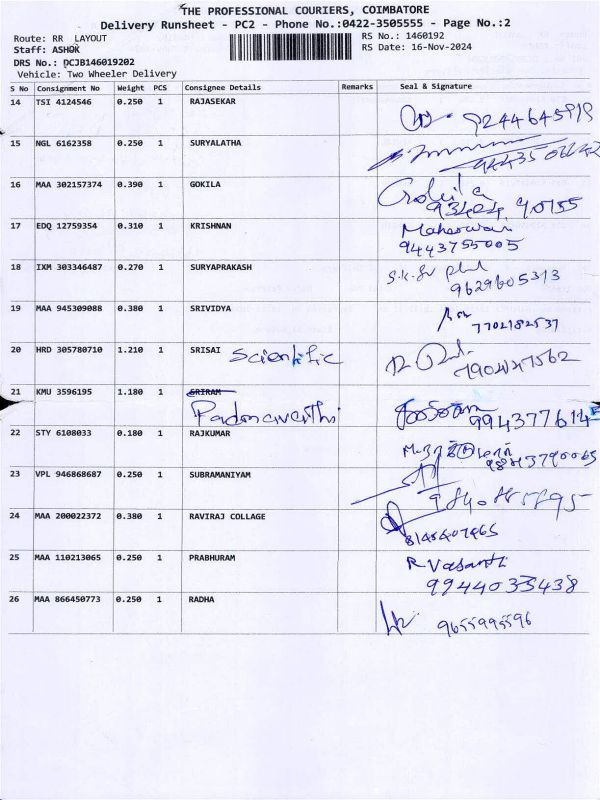 THE PROFESSIONAL COURIERS, COIMBATORE
Delivery Runsheet - PC2 - Phone No.:0422-3505555 - Page No.:2
Route: RR LAYOUT
RS No.: 1460192
Staff: ASHOK
RS Date: 16-Nov-2024
DRS No.: DCJB146019202
Vehicle: Two Wheeler Delivery
S No Consignment No Weight PCS Consignee Details Remarks Seal & Signature
14 TSI 4124546 0.250 1 RAJASEKAR
9244645919
15 NGL 6162358 0.250 1 SURYALATHA
16 MAA 302157374 0.390 1 GOKILA Gokila
17 EDQ 12759354 0.310 1 KRISHNAN Maheswari
9443755005
18 IXM 303346487 0.270 1 SURYAPRAKASH
9629605313
19 MAA 945309088 0.380 1 SRIVIDYA
7702182537
20 HRD 305780710 1.210 1 SRISAI Scientific
21 KMU 3596195 1.180 1 SRIRAM
Padmavathi 9943777614
22 STY 6108033 0.180 1 RAJKUMAR
23 VPL 946868687 0.250 1 SUBRAMANIYAM
24 MAA 200022372 0.380 1 RAVIRAJ COLLAGE
25 MAA 110213065 0.250 1 PRABHURAM R Vasanthi
9944033438
26 MAA 866450773 0.250 1 RADHA
9655995596